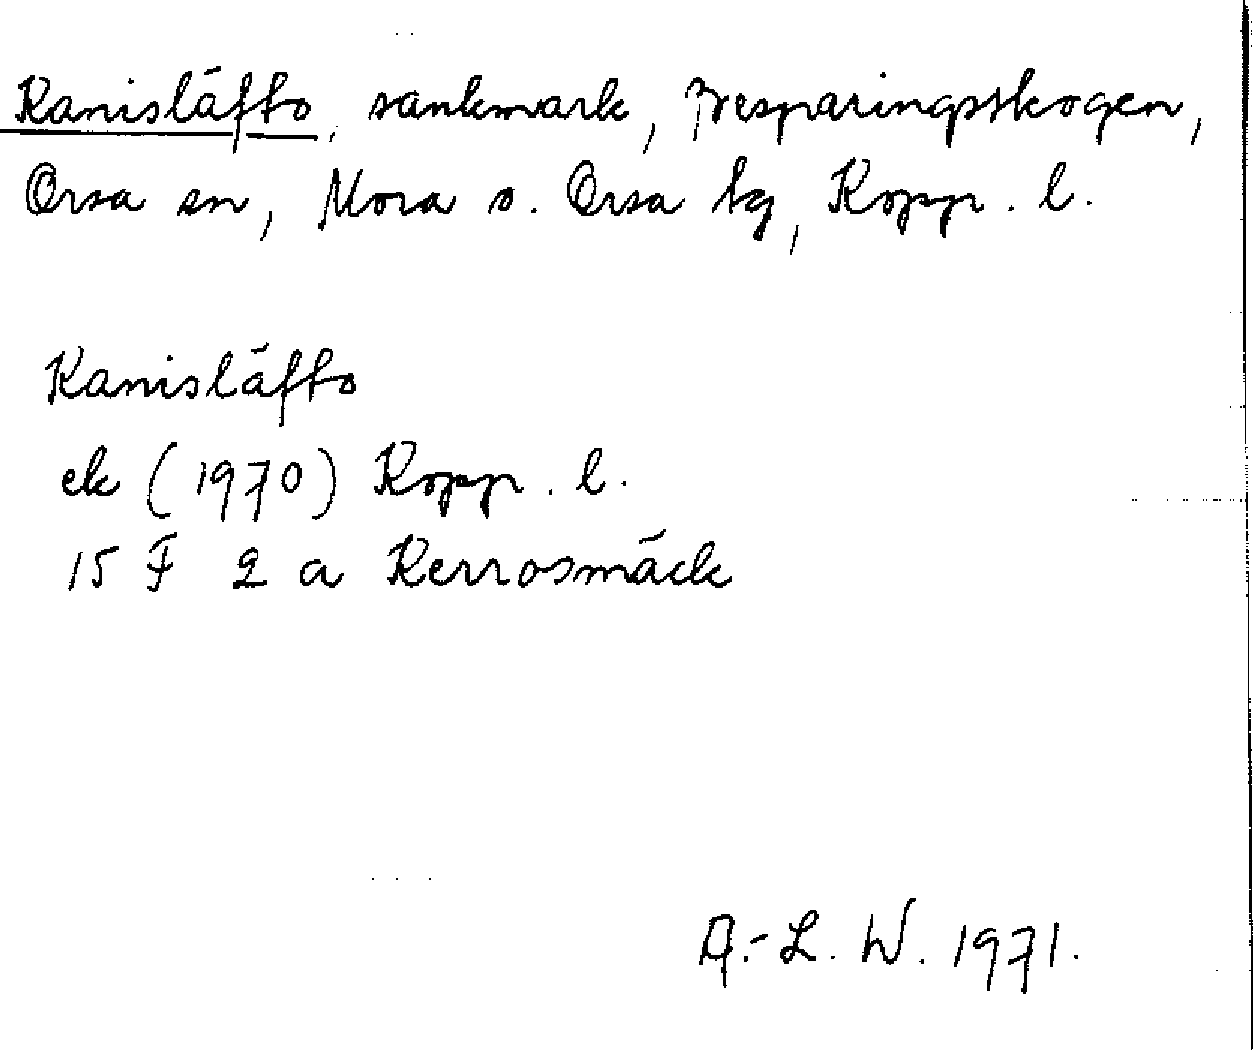 Kanisläfto, sankmark, Besparingsskogen,
Orsa sn, Mora o. Orsa tg, Kopp. l.
Kanisläfto
ek (1970) Kopp. l.
15 F 2 a Kerrosmäck
A.-L. W. 1971.